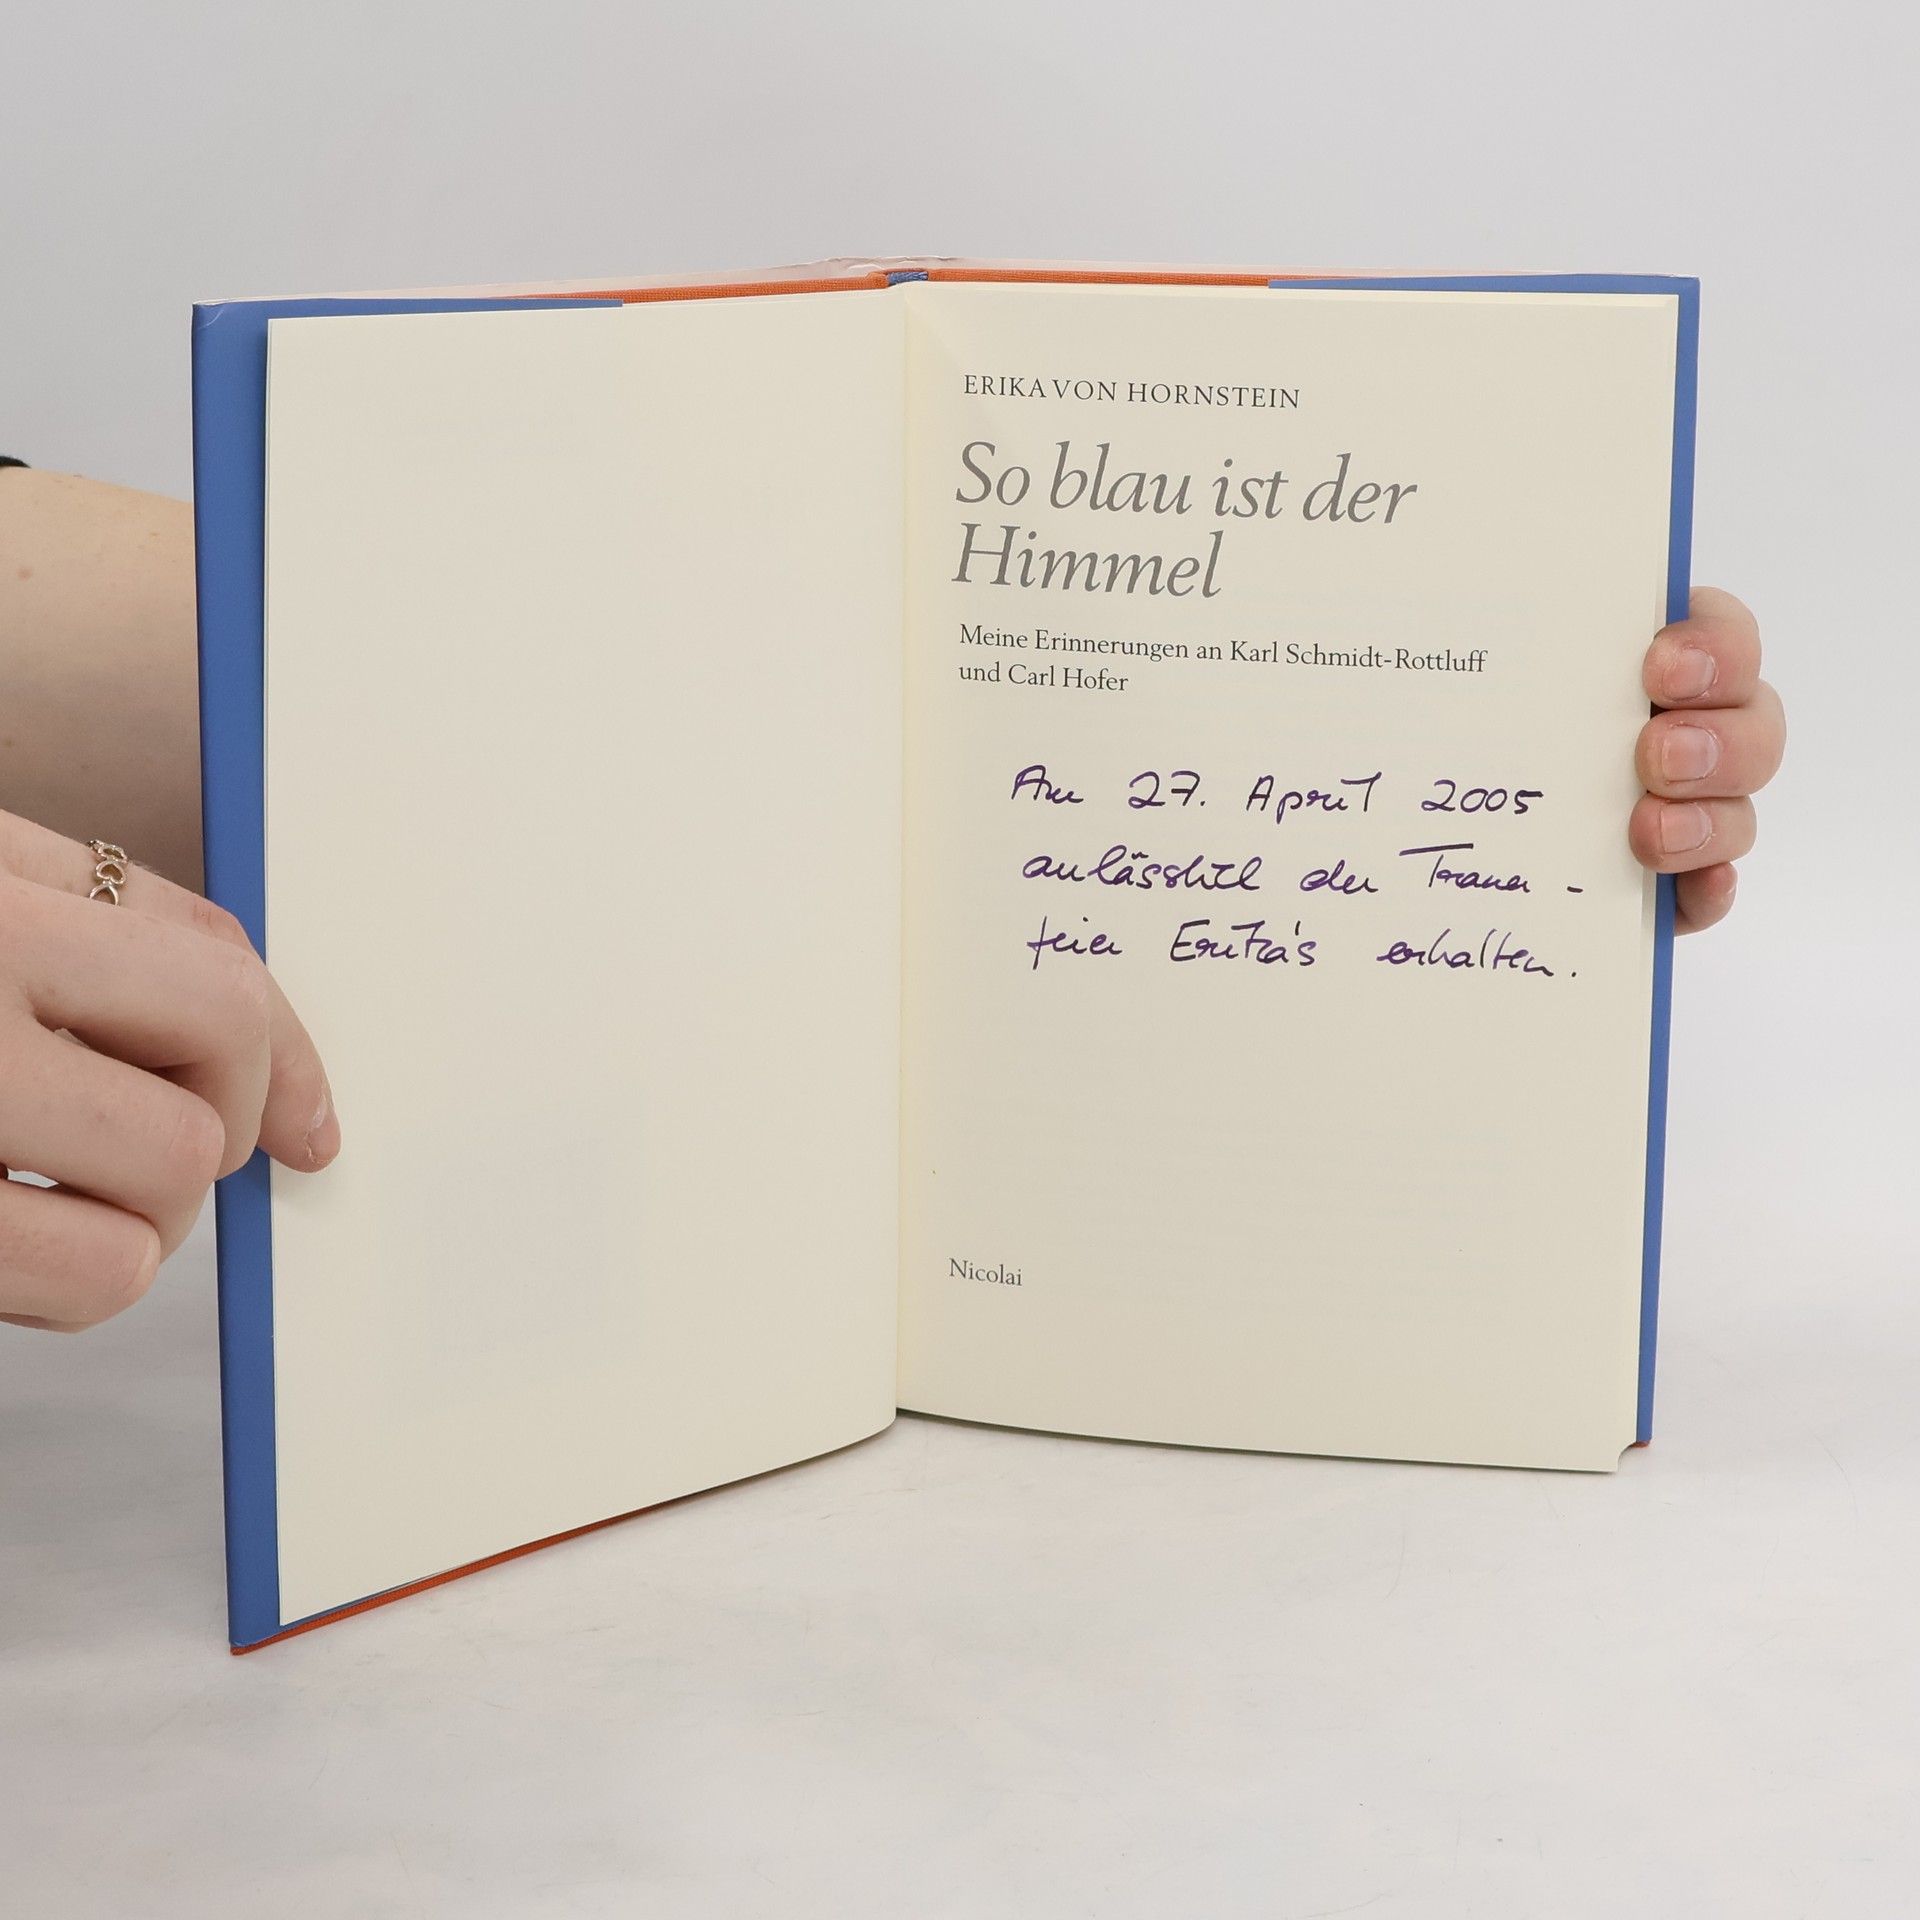 ERIKA VON HORNSTEIN
So blau ist der
Himmel
Meine Erinnerungen an Karl Schmidt-Rottluff
und Carl Hofer
Am 27. April 2005
anlässlich der Trauer-
feier Erika's erhalten.
Nicolai